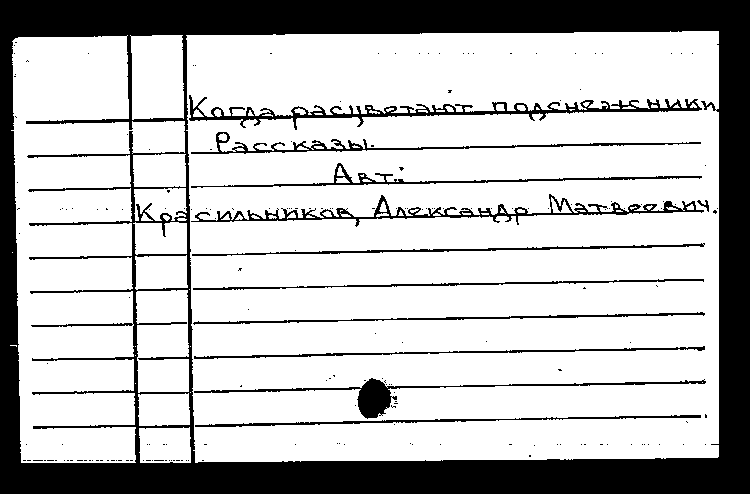 Когда расцветают подснежники.
Рассказы.
Авт.:
Красильников, Александр Матвеевич.